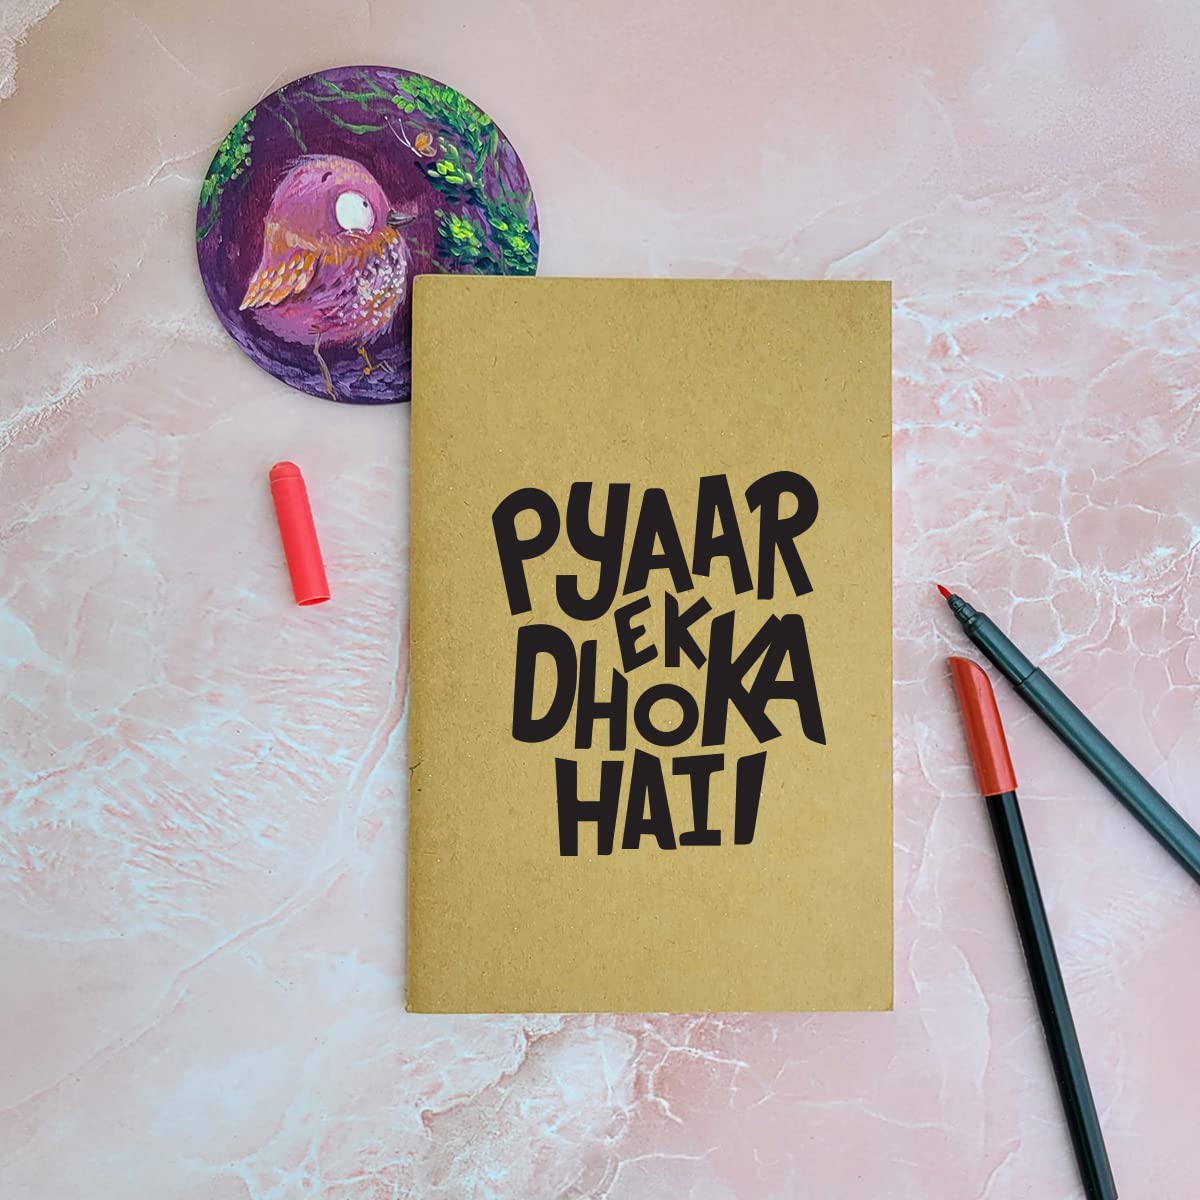 PYAAR
EK
DHOKA
HAI।